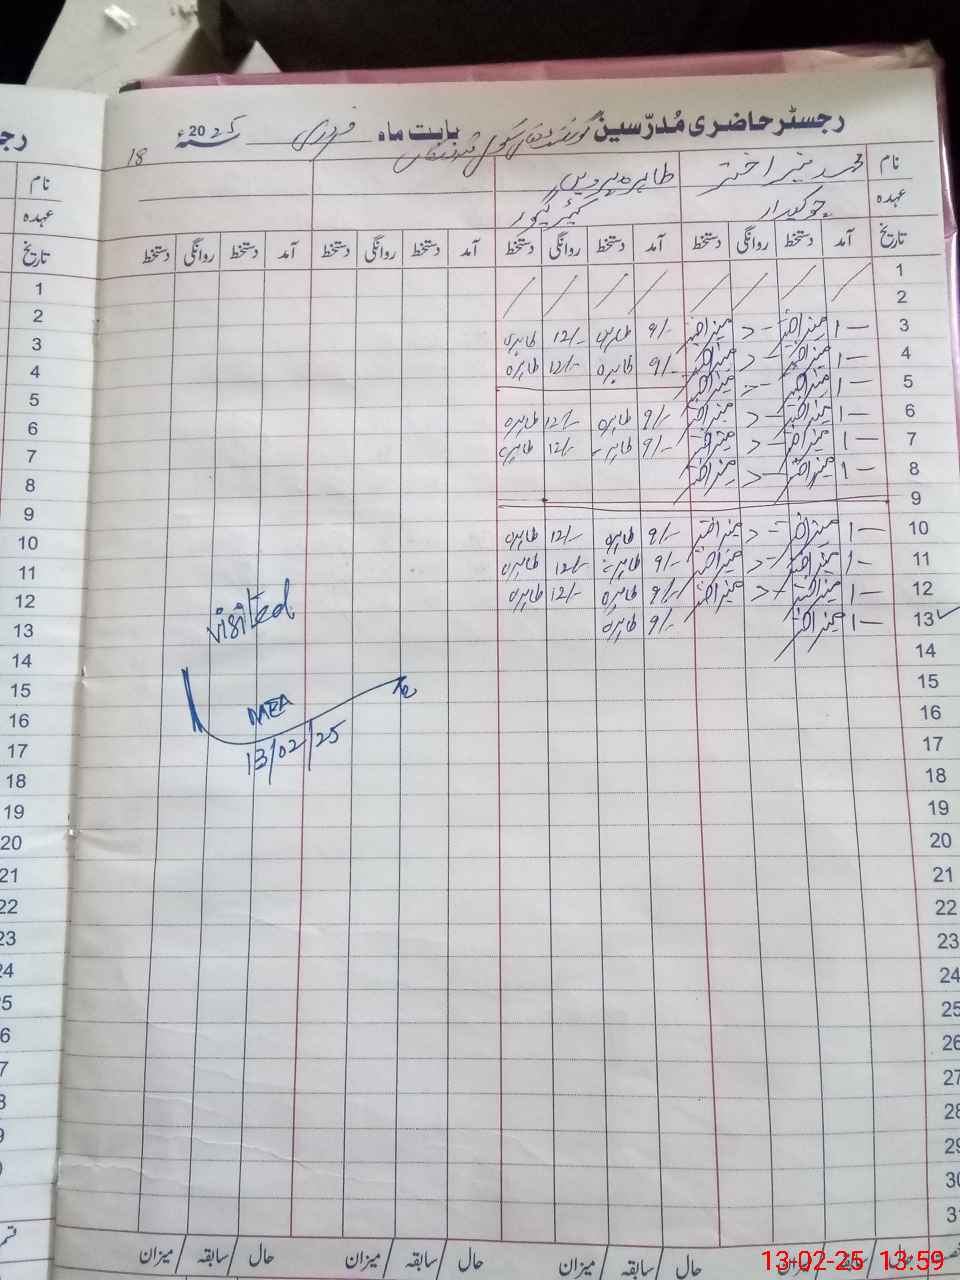 رجسٹر حاضری مُدرّسین گورنمنٹ بابت ماہ فروری 2025ء
18
نام محمد منیر اختر طاہرہ پروین
عہدہ چوکیدار کیئر گیور
تاریخ آمد دستخط روانگی دستخط آمد دستخط روانگی دستخط آمد دستخط روانگی دستخط آمد دستخط روانگی دستخط
1
2
3 1— منیر اختر منیر اختر 9/- طاہرہ 12/- طاہرہ
4 1— منیر اختر منیر اختر 9/- طاہرہ 12/- طاہرہ
5 1— منیر اختر منیر اختر
6 1— منیر اختر منیر اختر 9/- طاہرہ 12/- طاہرہ
7 1— منیر اختر منیر اختر 9/- طاہرہ 12/- طاہرہ
8 1— منیر اختر منیر اختر
9
10 1— منیر اختر منیر اختر 9/- طاہرہ 12/- طاہرہ
11 1— منیر اختر منیر اختر 9/- طاہرہ 12/- طاہرہ
12 1— منیر اختر منیر اختر 9/- طاہرہ 12/- طاہرہ
13 1— منیر اختر 9/- طاہرہ
14
15
16
17
18
19
20
21
22
23
24
25
26
27
28
29
30
31
visited
MEA
13/02/25
حال / سابقہ / میزان حال / سابقہ / میزان حال / سابقہ / میزان
نام
عہدہ
تاریخ
1
2
3
4
5
6
7
8
9
10
11
12
13
14
15
16
17
18
19
20
21
22
23
24
13-02-25 13:59